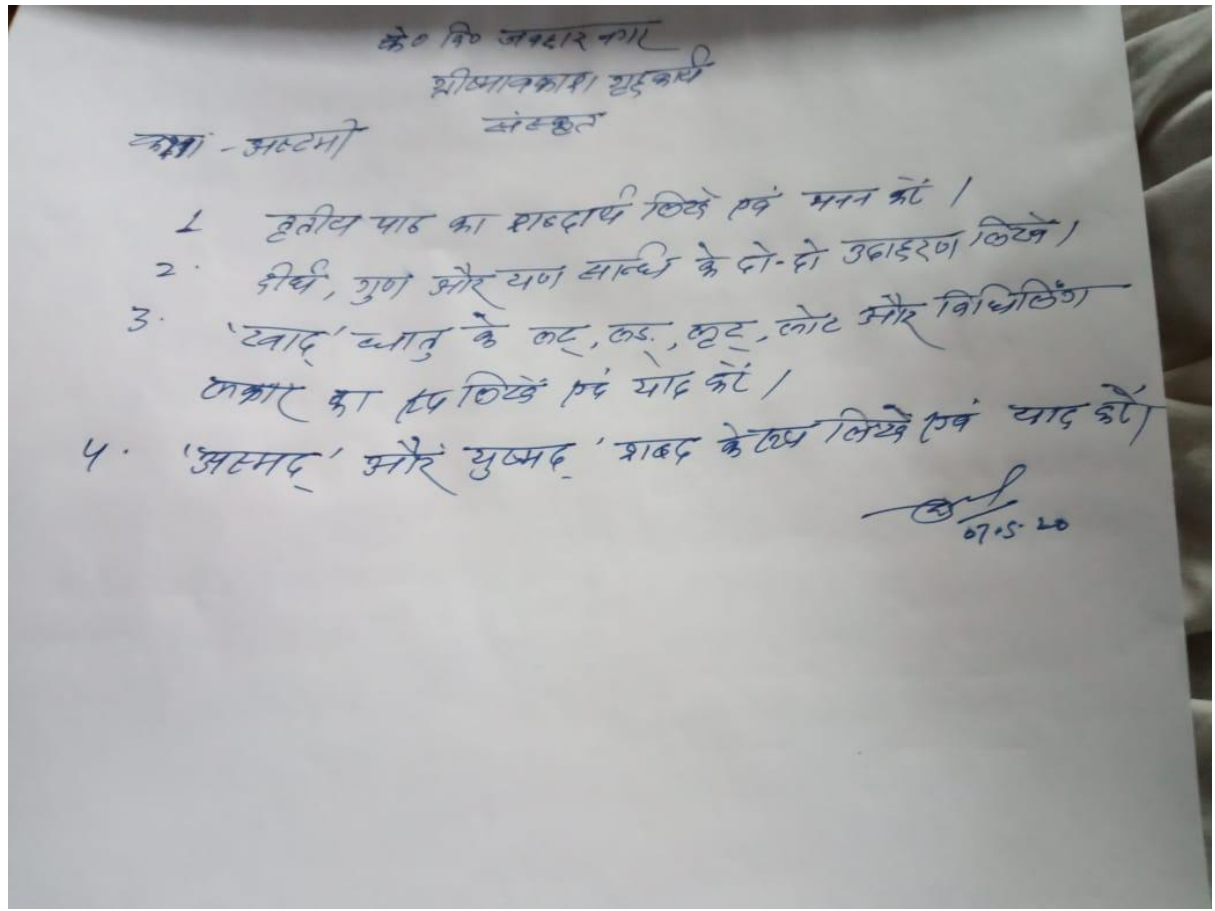 के० वि० जवाहर नगर
ग्रीष्मावकाश गृहकार्य
संस्कृत
कक्षा - अष्टमी
1 तृतीय पाठ का शब्दार्थ लिखें एवं मनन करें।
2. दीर्घ, गुण और यण सन्धि के दो-दो उदाहरण लिखें।
3. 'खाद्' धातु के लट्, लङ्, लृट्, लोट और विधिलिंग
लकार का रूप लिखें एवं याद करें।
4. 'अस्मद्' और युष्मद्' शब्द के रूप लिखें एवं याद करें।
07.5.20